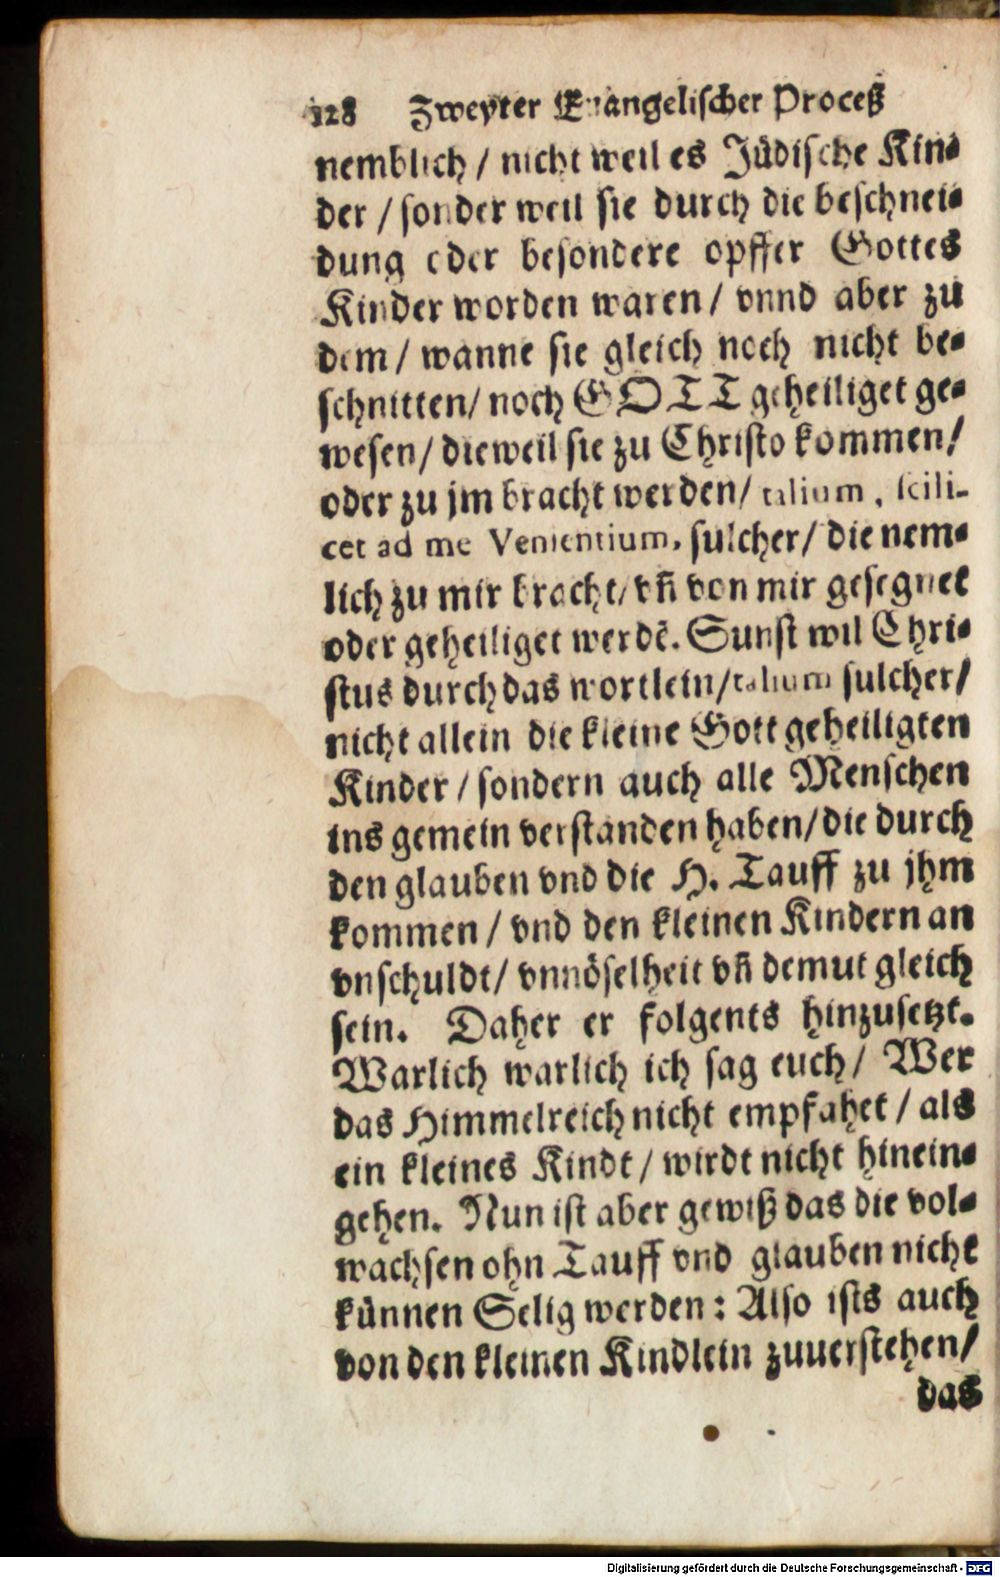 128 Zweyter Euangelischer Proceß
nemblich / nicht weil es Jüdische Kin⸗
der / sonder weil sie durch die beschnei⸗
dung oder besondere opffer Gottes
Kinder worden waren / vnnd aber zu
dem / wanne sie gleich noch nicht be⸗
schnitten / noch GOTT geheiliget ge⸗
wesen / dieweil sie zu Christo kommen /
oder zu jm bracht werden / talium , scili-
cet ad me Venientium, sulcher / die nem⸗
lich zu mir bracht / vñ von mir gesegnet
oder geheiliget werdẽ. Sunst wil Chri⸗
stus durch das wortlein / talium sulcher /
nicht allein die kleine Gott geheiligten
Kinder / sondern auch alle Menschen
ins gemein verstanden haben / die durch
den glauben vnd die H. Tauff zu jhm
kommen / vnd den kleinen Kindern an
vnschuldt / vnnöselheit vñ demut gleich
sein. Daher er folgents hinzusetzt.
Warlich warlich ich sag euch / Wer
das Himmelreich nicht empfahet / als
ein kleines Kindt / wirdt nicht hinein⸗
gehen. Nun ist aber gewiß das die vol⸗
wachsen ohn Tauff vnd glauben nicht
künnen Selig werden : Also ists auch
von den kleinen Kindlein zuuerstehen /
das
Digitalisierung gefördert durch die Deutsche Forschungsgemeinschaft - DFG